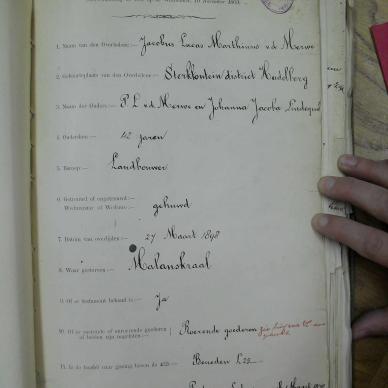 1. Naam van den Overledene:— Jacobus Lucas Marthinus v d Merwe
2. Geboorteplaats van den Overledene:— Sterkfontein district Heidelberg
3. Naam der Ouders:— P. L. v d. Merwe en Johanna Jacoba Lindeque
4. Ouderdom:— 42 jaren
5. Beroep:— Landbouwer
6. Getrouwd of ongetrouwd:—
Weduwnaar of Weduwe:— gehuwd
7. Datum van overlijden:— 27 Maart 1898
8. Waar gestorven:— Malanskraal
9. Of er testament bekend is:— Ja
10. Of er roerende of onroerende goederen Roerende goederen
of beiden zijn nagelaten:—
11. Is de boedel naar gissing boven de £25:— Beneden £25